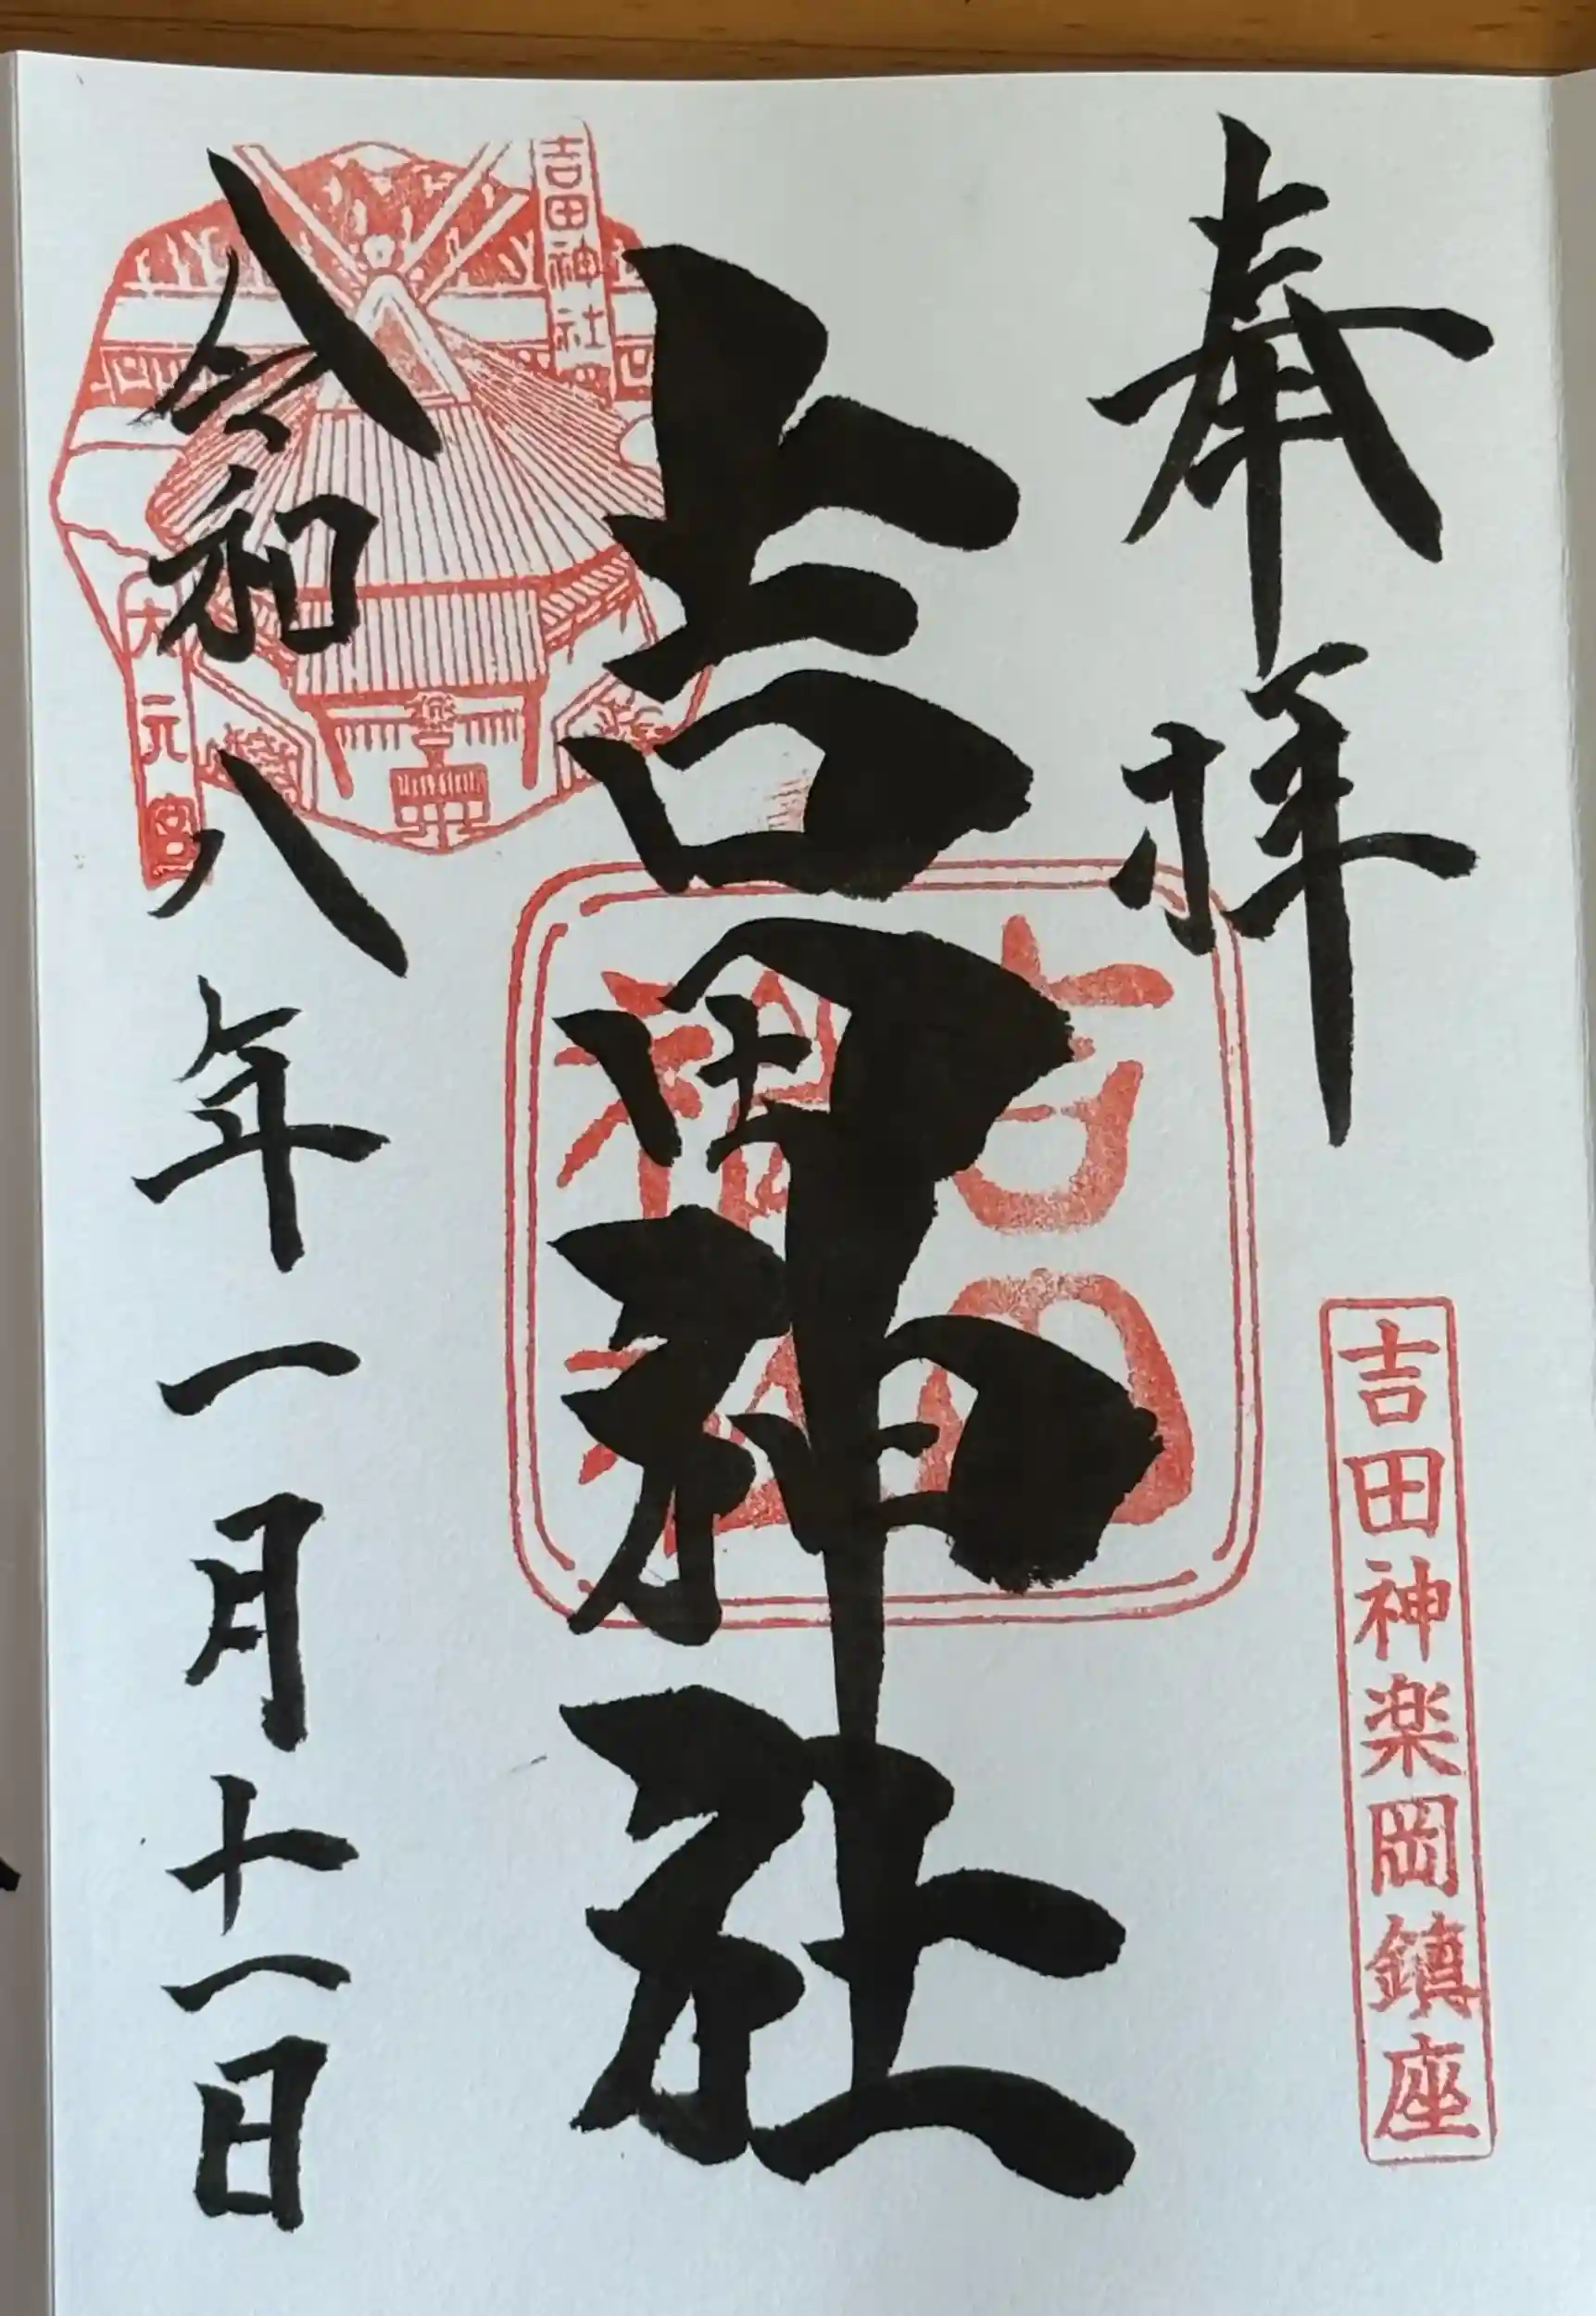 奉拝
吉田神楽岡鎮座
吉田神社
吉田神社
令和八年一月十一日
吉田神社
大元宮